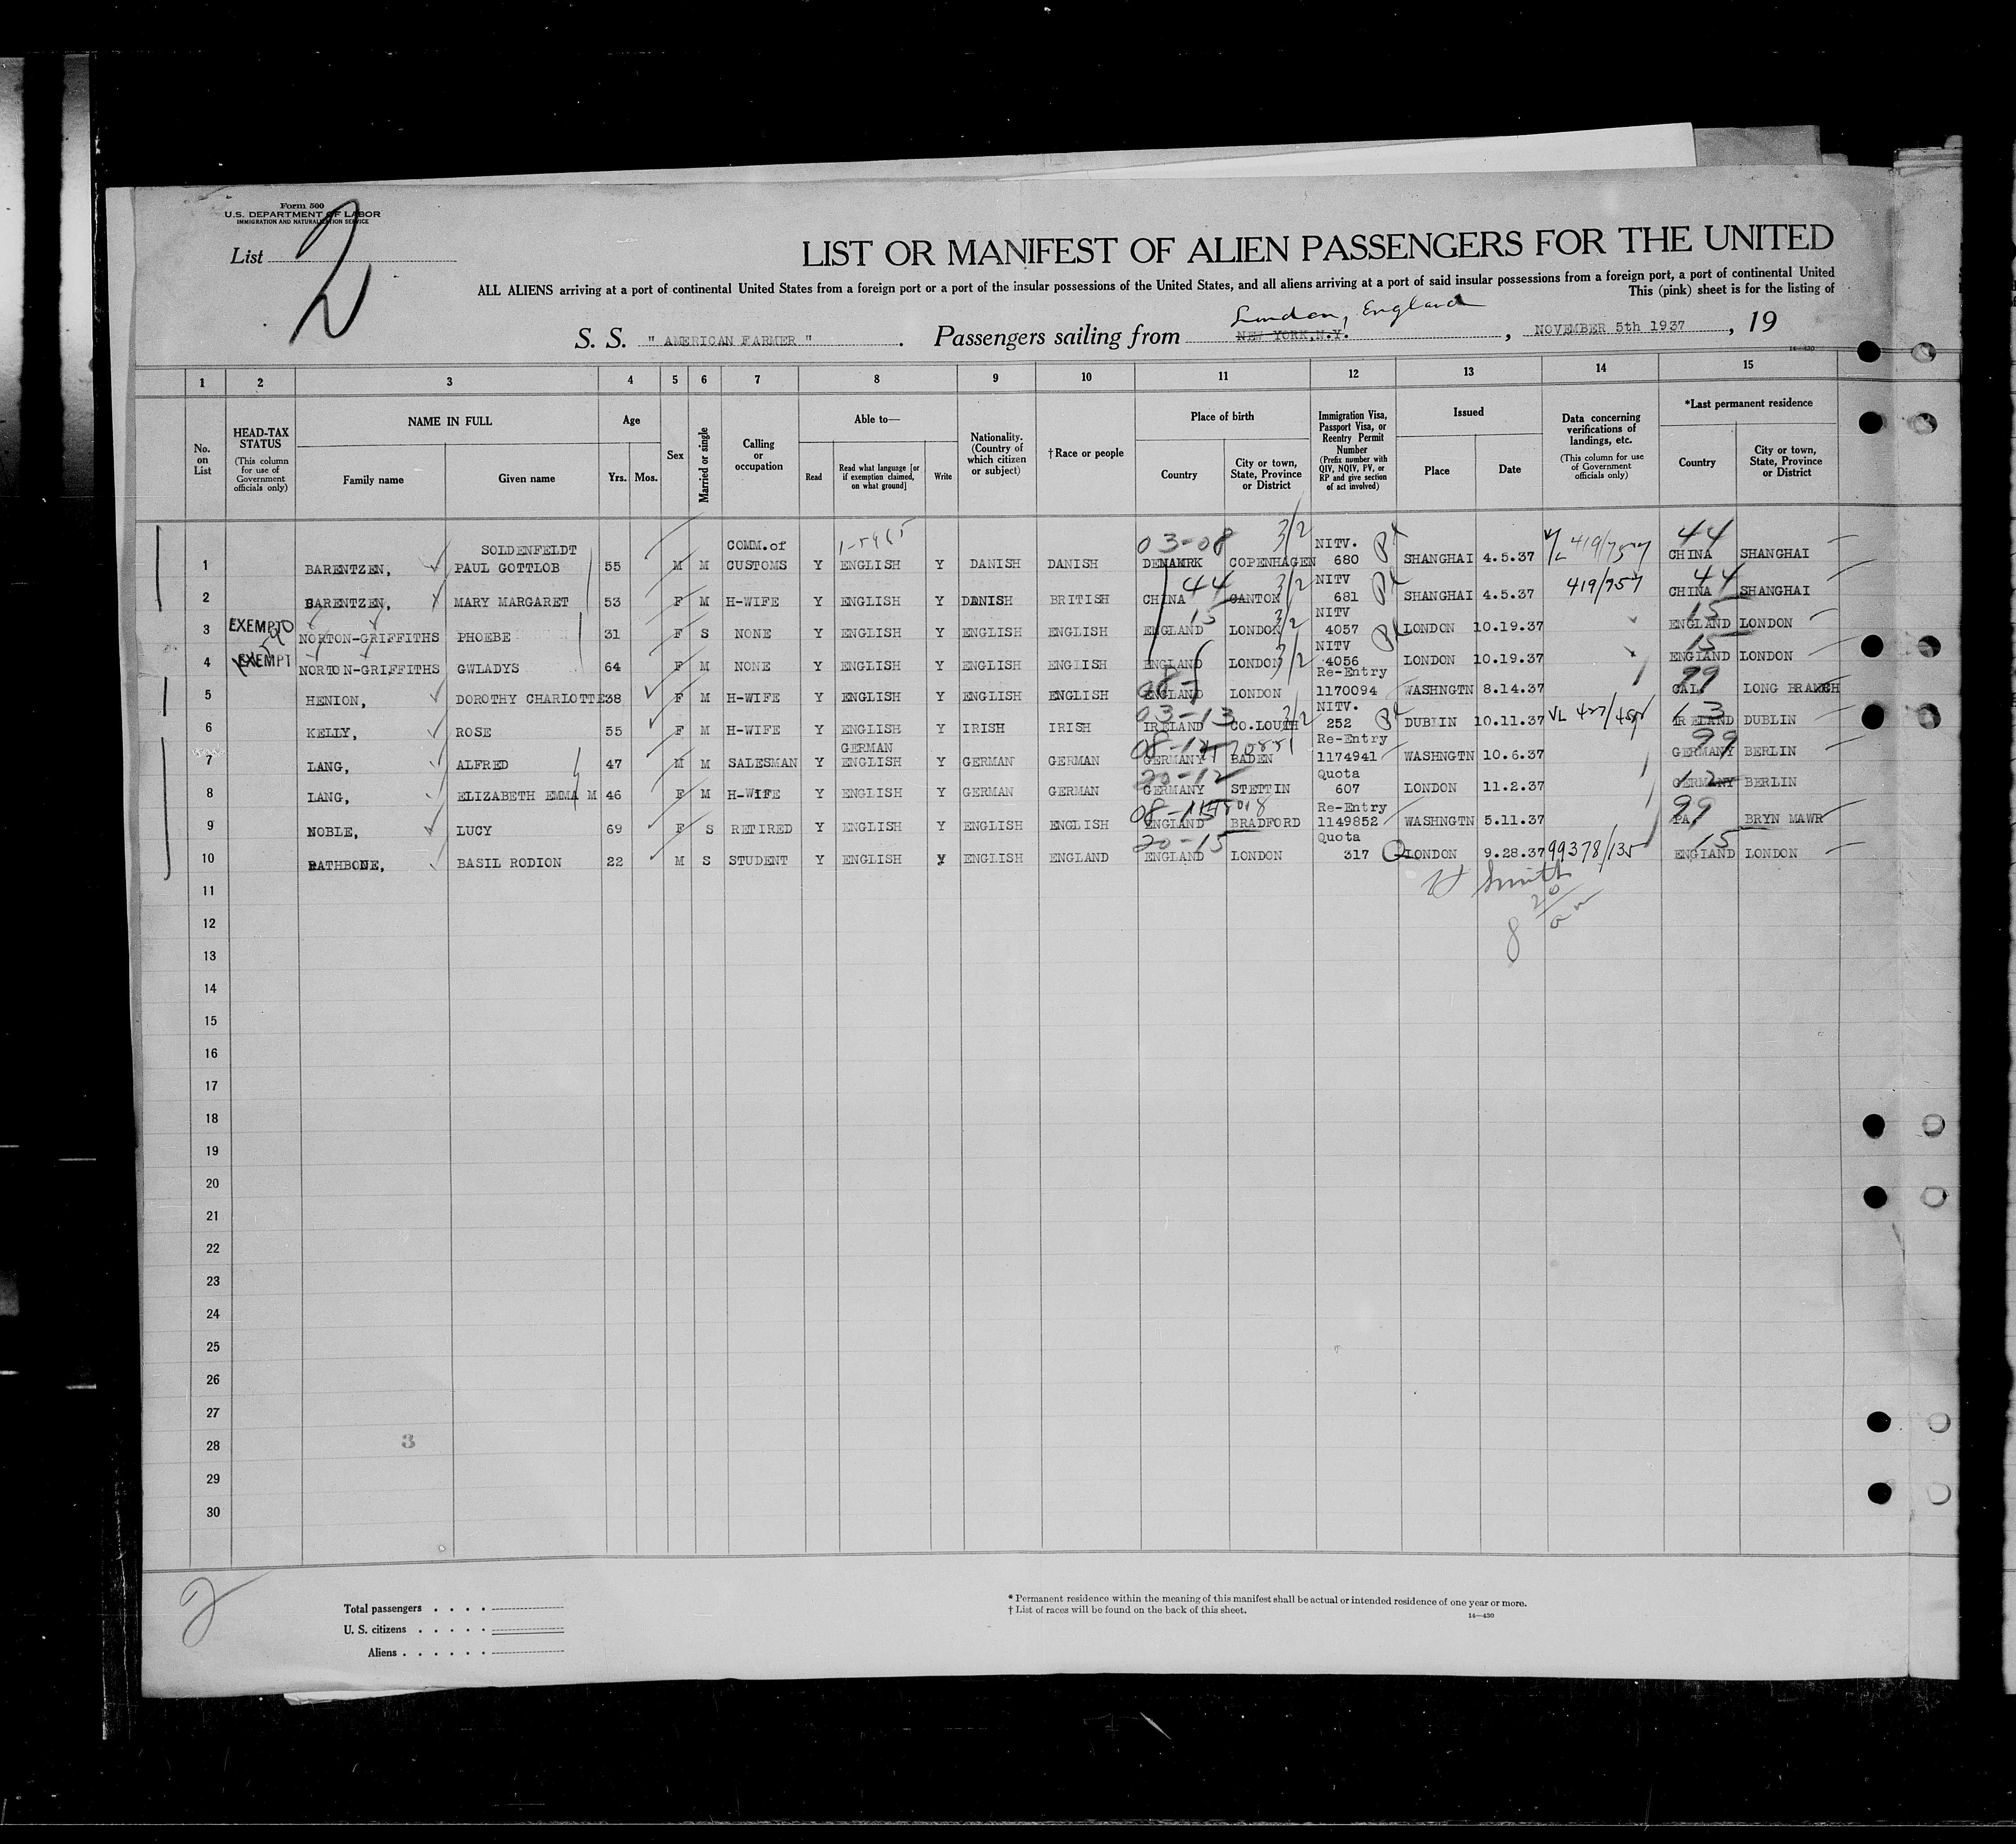 Form 500
U.S. DEPARTMENT OF LABOR
IMMIGRATION AND NATURALIZATION SERVICE
List 2
LIST OR MANIFEST OF ALIEN PASSENGERS FOR THE UNITED
ALL ALIENS arriving at a port of continental United States from a foreign port or a port of the insular possessions of the United States, and all aliens arriving at a port of said insular possessions from a foreign port, a port of continental United
This (pink) sheet is for the listing of
London, England
S. S. " AMERICAN FARMER " . Passengers sailing from NEW YORK,N.Y. , NOVEMBER 5th 1937 , 19
14—430
1 2 3 4 5 6 7 8 9 10 11 12 13 14 15
No. on List
HEAD-TAX STATUS
(This column for use of Government officials only)
NAME IN FULL
Family name Given name
Age
Yrs. Mos.
Sex
Married or single
Calling or occupation
Able to—
Read Read what language [or if exemption claimed, on what ground] Write
Nationality. (Country of which citizen or subject)
†Race or people
Place of birth
Country City or town, State, Province or District
Immigration Visa, Passport Visa, or Reentry Permit Number
(Prefix number with QIV, NQIV, PV, or RP and give section of act involved)
Issued
Place Date
Data concerning verifications of landings, etc.
(This column for use of Government officials only)
*Last permanent residence
Country City or town, State, Province or District
03-08 3/2 44
SOLDENFELDT COMM.of NITV.
1 BARENTZEN, PAUL GOTTLOB 55 M M CUSTOMS Y ENGLISH Y DANISH DANISH DENAMRK COPENHAGEN 680 SHANGHAI 4.5.37 CHINA SHANGHAI
44 3/2 NITV 419/757 44
2 BARENTZEN, MARY MARGARET 53 F M H-WIFE Y ENGLISH Y DANISH BRITISH CHINA CANTON 681 SHANGHAI 4.5.37 CHINA SHANGHAI
EXEMPT 15 3/2 NITV 15
3 NORTON-GRIFFITHS PHOEBE 31 F S NONE Y ENGLISH Y ENGLISH ENGLISH ENGLAND LONDON 4057 LONDON 10.19.37 ENGLAND LONDON
EXEMPT 3/2 NITV 15
4 NORTON-GRIFFITHS GWLADYS 64 F M NONE Y ENGLISH Y ENGLISH ENGIISH ENGLAND LONDON 4056 LONDON 10.19.37 ENGLAND LONDON
Re-Entry 99
5 HENION, DOROTHY CHARLOTTE 38 F M H-WIFE Y ENGLISH Y ENGLISH ENGLISH ENGLAND LONDON 1170094 WASHNGTN 8.14.37 CAL. LONG BRANCH
03-13 3/2 NITV. 13
6 KELLY, ROSE 55 F M H-WIFE Y ENGLISH Y IRISH IRISH IRELAND CO.LOUTH 252 DUBLIN 10.11.37 IRELAND DUBLIN
GERMAN Re-Entry 99
7 LANG, ALFRED 47 M M SALESMAN Y ENGLISH Y GERMAN GERMAN GERMANY BADEN 1174941 WASHNGTN 10.6.37 GERMANY BERLIN
20-12 Quota 12
8 LANG, ELIZABETH EMMA M 46 F M H-WIFE Y ENGLISH Y GERMAN GERMAN GERMANY STETTIN 607 LONDON 11.2.37 GERMANY BERLIN
Re-Entry 99
9 NOBLE, LUCY 69 F S RETIRED Y ENGLISH Y ENGLISH ENGLISH ENGLAND BRADFORD 1149852 WASHNGTN 5.11.37 PA. BRYN MAWR
20-15 Quota 15
10 RATHBONE, BASIL RODION 22 M S STUDENT Y ENGLISH Y ENGLISH ENGLAND ENGLAND LONDON 317 LONDON 9.28.37 99378/135 ENGIAND LONDON
Smith
11
12
13
14
15
16
17
18
19
20
21
22
23
24
25
26
27
28
3
29
30
2
Total passengers
U. S. citizens
Aliens
* Permanent residence within the meaning of this manifest shall be actual or intended residence of one year or more.
† List of races will be found on the back of this sheet.
14—430